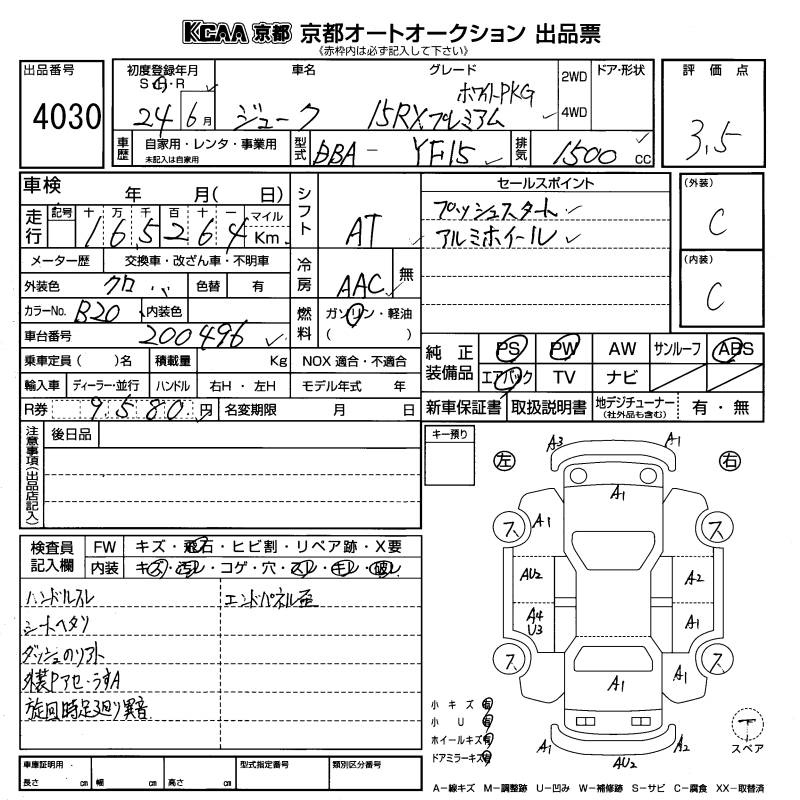 KCAA 京都 京都オートオークション 出品票
《赤枠内は必ず記入して下さい》
出品番号
4030
初度登録年月
S・H・R
24 6月
車名
ジューク
グレード
ホワイトPKG
15RXプレミアム
2WD
4WD
ドア・形状
評価点
3.5
車歴
自家用・レンタ・事業用
未記入は自家用
型式
DBA- YF15
排気
1500 cc
車検 年 月( 日)
走行
記号 十 万 千 百 十 一 マイル
165264 Km
シフト
AT
メーター歴 交換車・改ざん車・不明車
外装色 クロ 色替 有
冷房
AAC 無
カラーNo. B20 内装色
燃料
ガソリン・軽油
( )
車台番号 200496
乗車定員( )名 積載量 Kg NOX 適合・不適合
輸入車 ディーラー・並行 ハンドル 右H・左H モデル年式 年
R券 9580円 名変期限 月 日
セールスポイント
プッシュスタート
アルミホイール
(外装)
C
(内装)
C
純正装備品
PS PW AW サンルーフ ABS
エアバック TV ナビ
新車保証書 取扱説明書 地デジチューナー(社外品も含む) 有・無
注意事項(出品店記入)
後日品
キー預り
検査員記入欄
FW キズ・飛石・ヒビ割・リペア跡・X要
内装 キズ・汚レ・コゲ・穴・スレ・キレ・破レ
ハンドルスレ
シートヘタリ
エンドパネル歪
旋回時足廻り異音
左 右
A3 A1
A1
ス A1 ス
AU2 A2
A4
U3
A1
ス A1 ス
A1
A1 AU2 A2
小キズ 有
小U 有
ホイールキズ 有
ドアミラーキズ 有
スペア
車庫証明用
長さ cm 幅 cm 高さ cm
型式指定番号
類別区分番号
A-線キズ M-調整跡 U-凹み W-補修跡 S-サビ C-腐食 XX-取替済